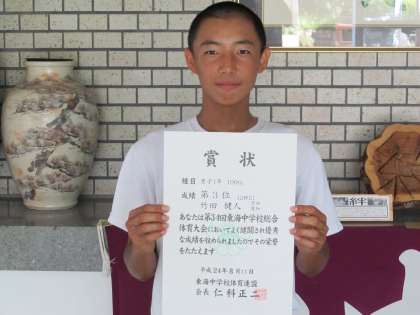 賞状
種目 男子1年 1500m
成績 第3位
竹田 健人
あなたは第34回東海中学校総合
体育大会においてよく健闘され優秀
な成績を收められましたのでその栄誉
をたたえます
平成24年8月11日
東海中学校体育連盟
会長 仁科正二